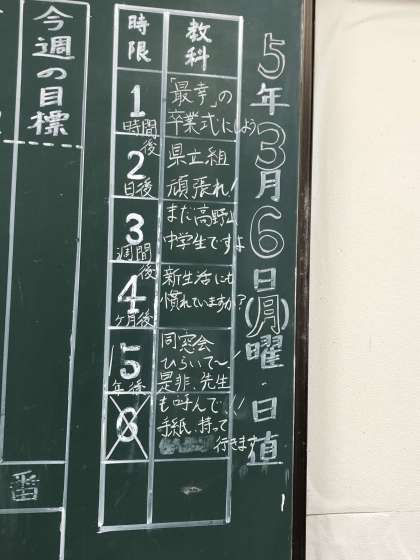 5年3月6日(月)曜・日直
教科
時限
1
時間後
「最幸」の
卒業式にしよう
2
日後
県立組
頑張れ!
3
週間後
まだ高野山
中学生ですよ
4
ヶ月後
新生活にも
慣れていますか?
15
年後
同窓会
ひらいて〜!
是非、先生
6
も呼んで!!
手紙、持って
行きます
今週の目標
番